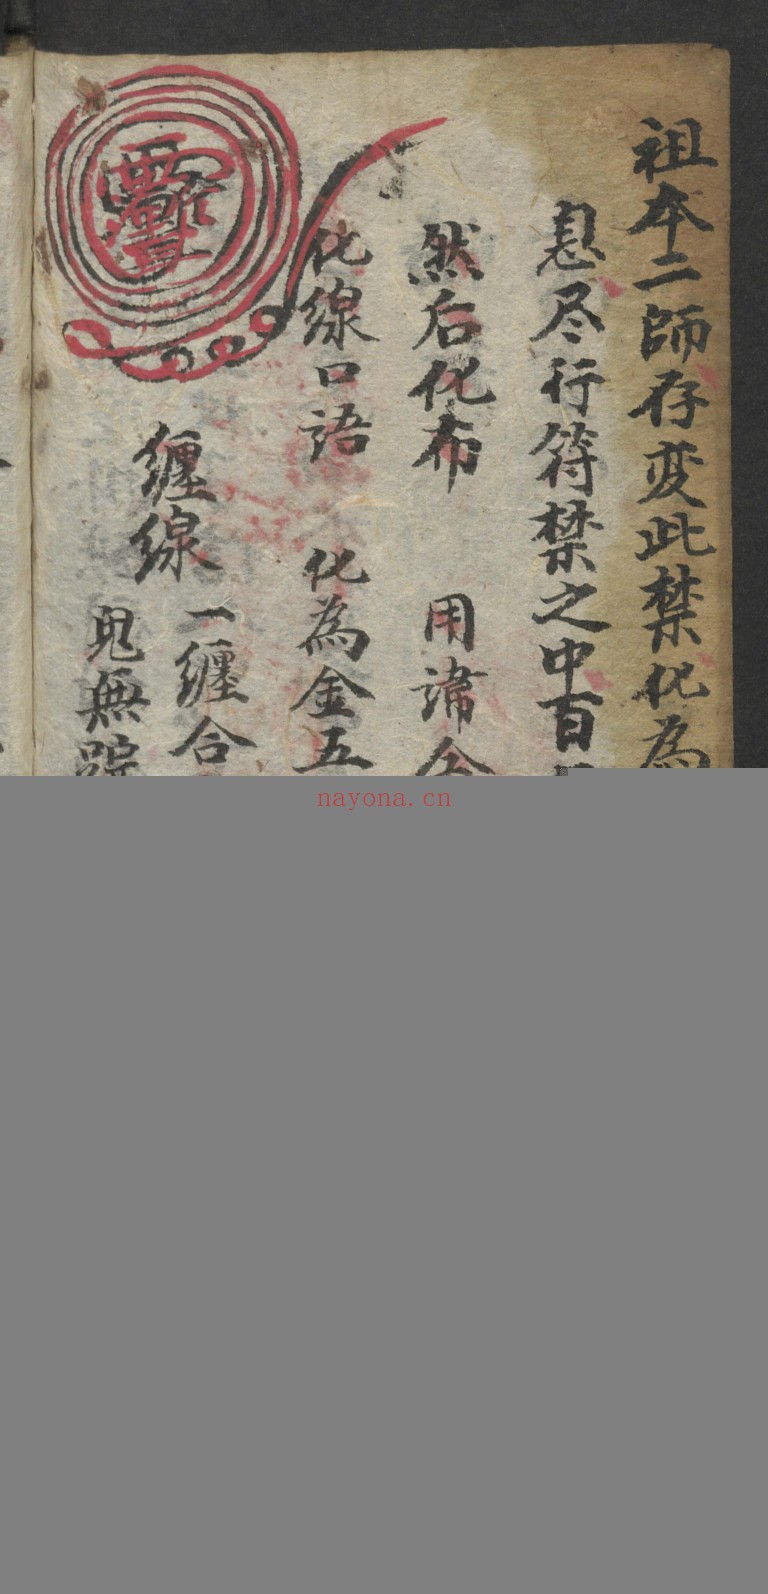 祖本二師存変此禁化為
息尽行符禁之中百
然后化布 用諱
化線口語 化為金五
纏線 一纏合
鬼無踪
nayona.cn